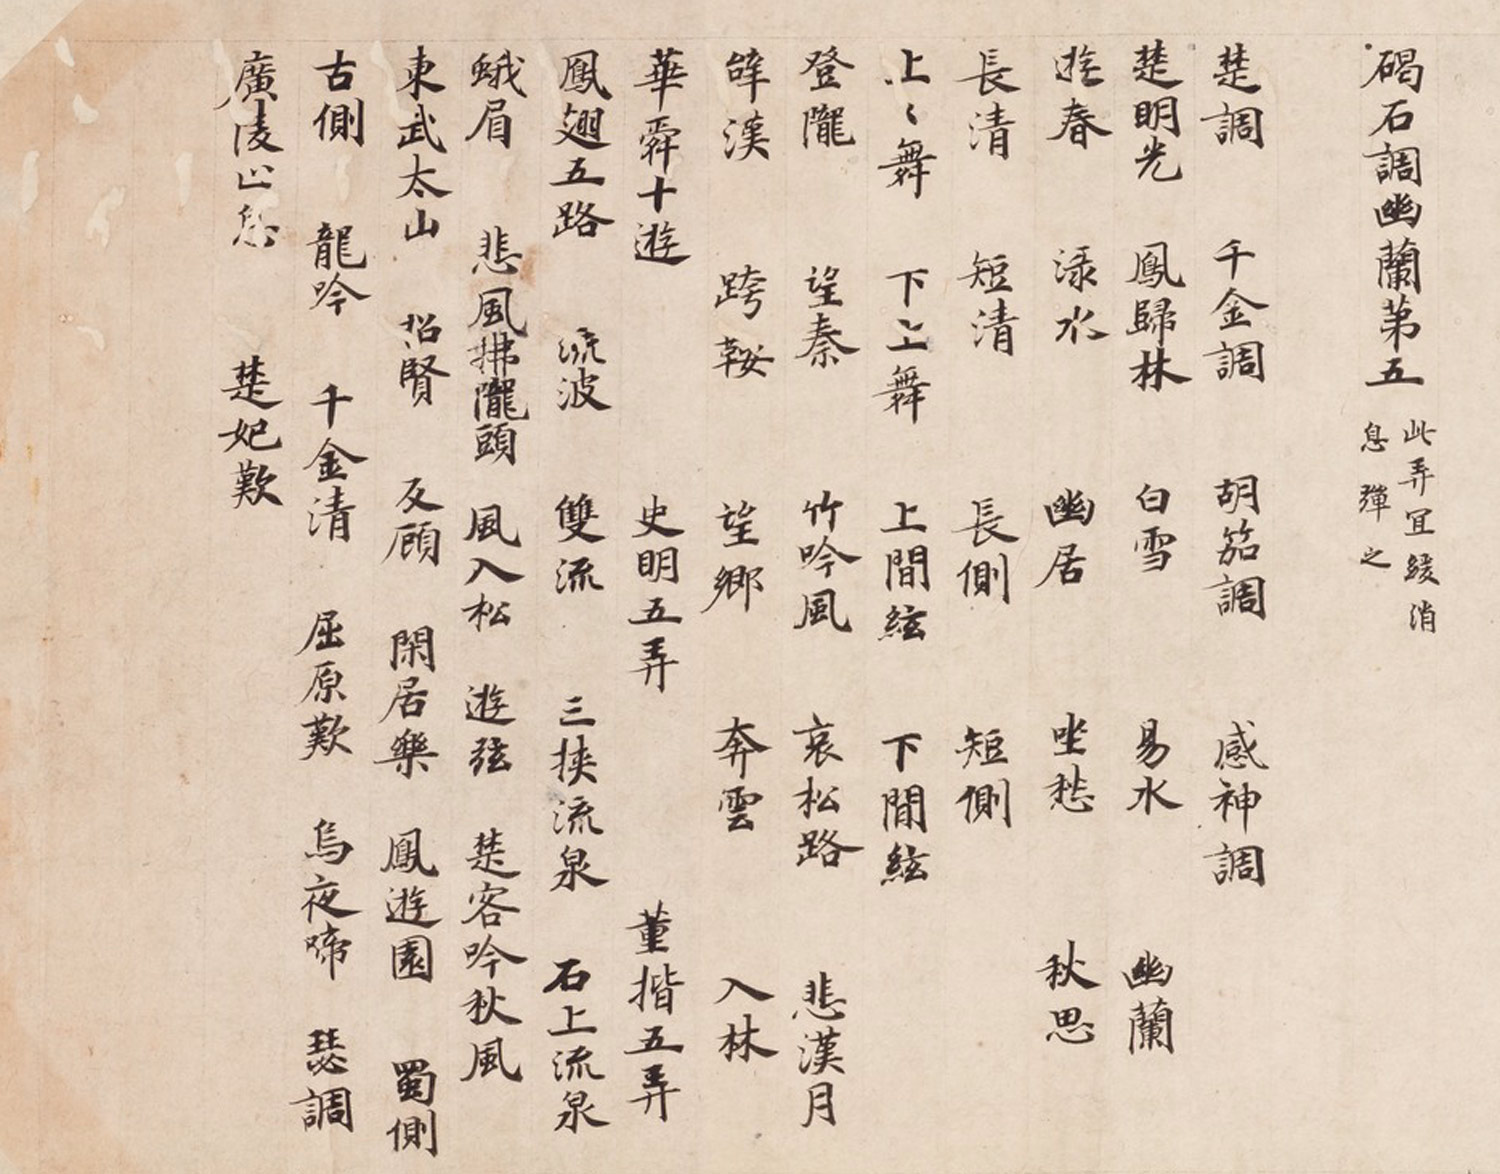 碣石調幽蘭第五 此弄宜緩消息彈之
楚調 千金調 胡笳調 感神調
楚明光 鳳歸林 白雪 易水 幽蘭
遊春 淥水 幽居 坐愁 秋思
長清 短清 長側 短側
上〻舞 下上舞 上間絃 下間絃
登隴 望秦 竹吟風 哀松路 悲漢月
辞漢 跨鞍 望鄉 奔雲 入林
華舜十遊 史明五弄 董揩五弄
鳳翅五路 流波 雙流 三挾流泉 石上流泉
蛾眉 悲風拂隴頭 風入松 遊弦 楚客吟秋風
東武太山 招賢 反顧 閑居樂 鳳遊園 蜀側
古側 龍吟 千金清 屈原歎 烏夜啼 瑟調
廣陵止息 楚妃歎